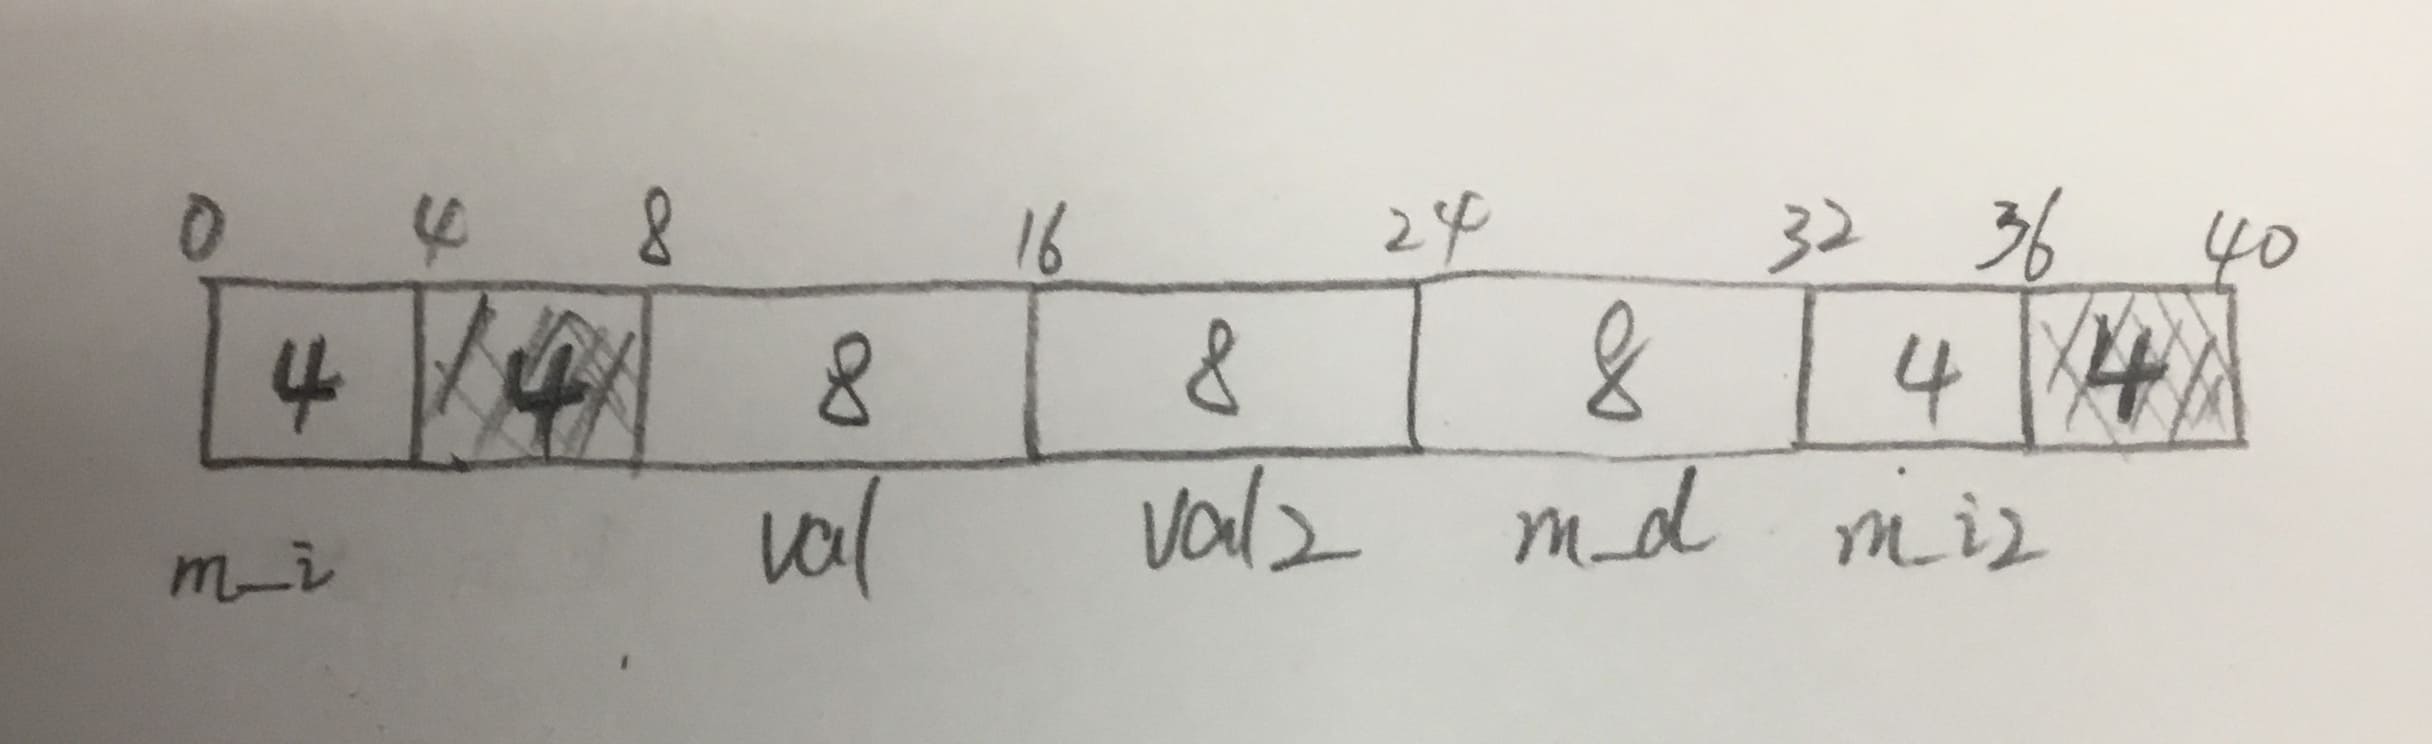 0 4 8 16 24 32 36 40
4 4 8 8 8 4 4
m_i val val2 m_d m_i2